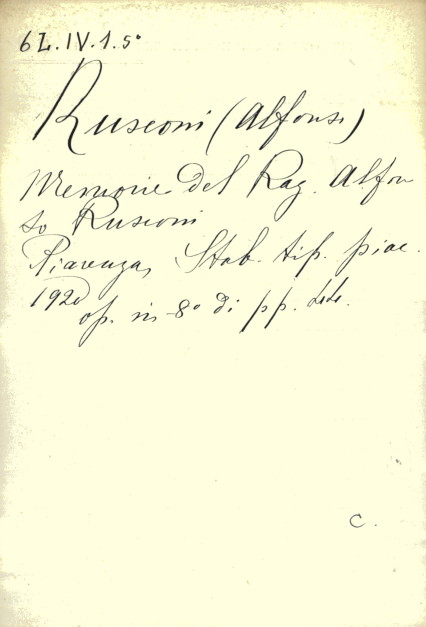 6 Z.IV.1.5°
Rusconi (Alfonso)
Memorie del Rag. Alfon
so Rusconi
Piacenza, Stab. tip. piac.
1920
op. in 8° di pp.
C.